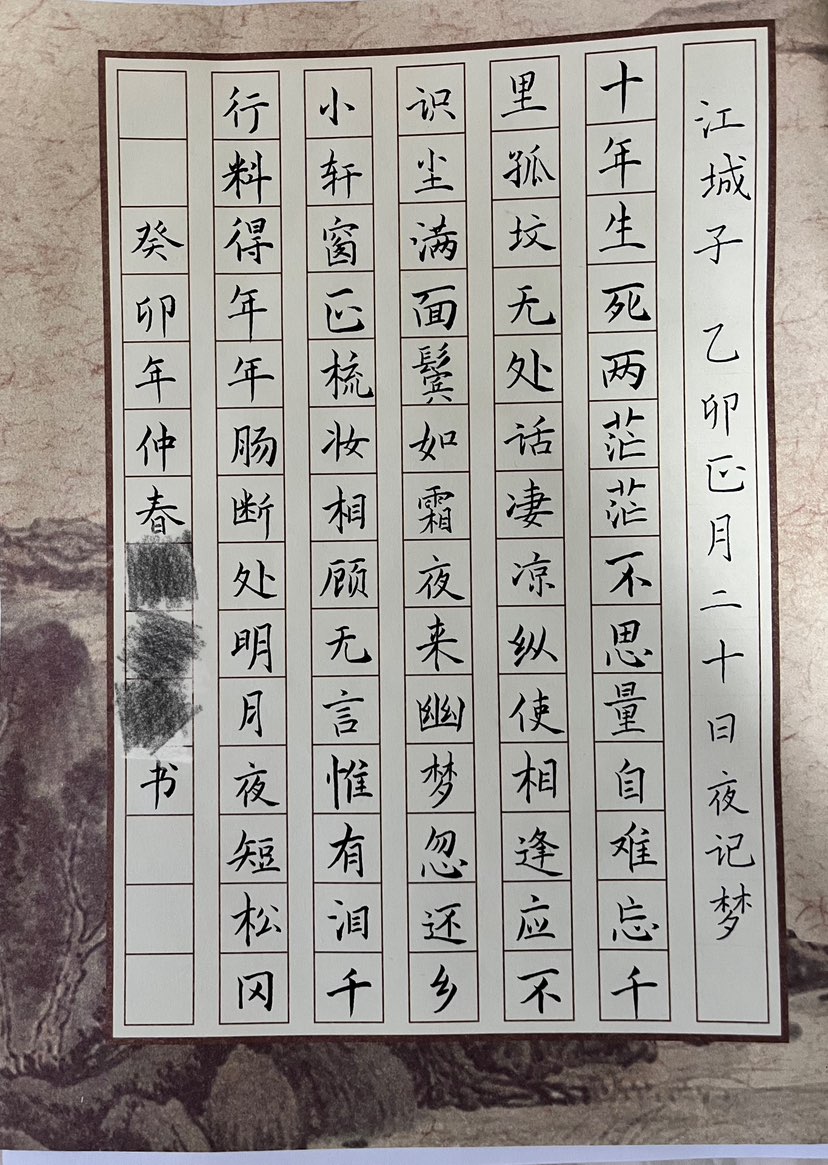 江城子 乙卯正月二十日夜记梦
十年生死两茫茫不思量自难忘千
里孤坟无处话凄凉纵使相逢应不
识尘满面鬓如霜夜来幽梦忽还乡
小轩窗正梳妆相顾无言惟有泪千
行料得年年肠断处明月夜短松冈
癸卯年仲春
书